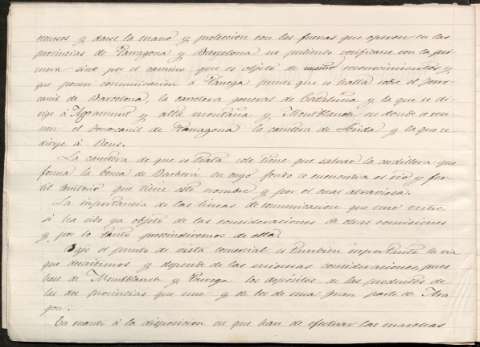 marse y darse la mano y proteccion con las fuerzas que operen en las
provincias de Tarragona y Barcelona no pudiendo verificarse con la pri-
mera sino por el camino que es objeto de nuestro reconocimiento y
que ponen comunicacion á Tárrega punto que se halla sobre el ferro-
carril de Barcelona, la carretera general de Cataluña y la que se di-
rije á Agramunt y alta montaña y Montblanch en donde se reu-
nen el ferrocarril de Tarragona la carretera de Lérida y la que se
dirije á Reus.
La carretera de que se trata solo tiene que salvar la cordillera que
forma la cuenca de en cuyo fondo se encuentra el rio y fer-
til territorio que tiene este nombre y por el cual atraviesa.
La importancia de las lineas de comunicacion que une entre
si ha sido ya objeto de las consideraciones de otras comisiones
y por lo tanto prescindiremos de ella.
Bajo el punto de vista comercial es tambien importante la via
que describimos y depende de las mismas consideraciones pues
han de Montblanch y Tarrega los depósitos de los productos de
las dos provincias que une y de los de una gran parte de Ara
gon.
En cuanto á la disposicion en que han de efectuar las marchas